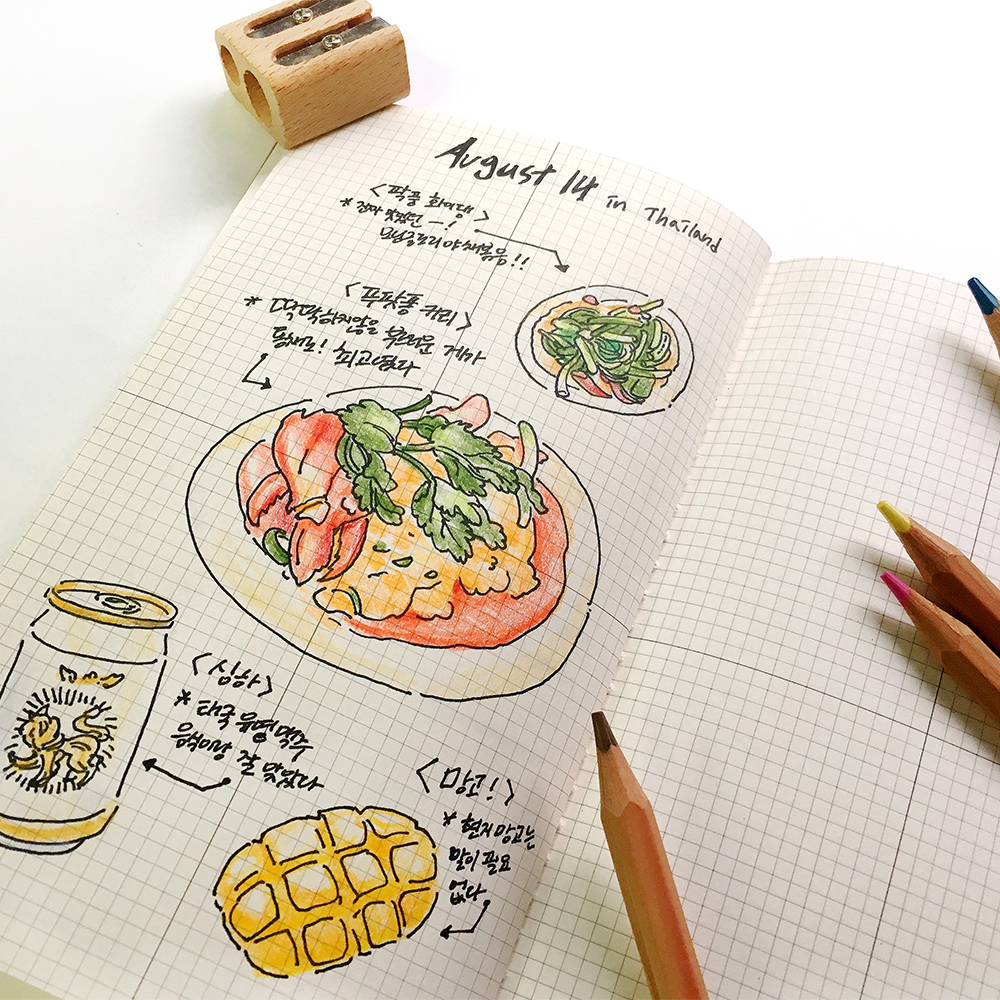 August 14 in Thailand
<팍풍 화이댕>
* 진짜 맛있던 ㅡ!
모닝글로리 야채볶음!!
<푸팟퐁 커리>
* 딱딱하지않을 부드러운 게가
통째로! 최고였다
<싱하>
* 태국 유명맥주
음식이랑 잘 맞았다
<망고!>
* 현지망고는
말이 필요
없다